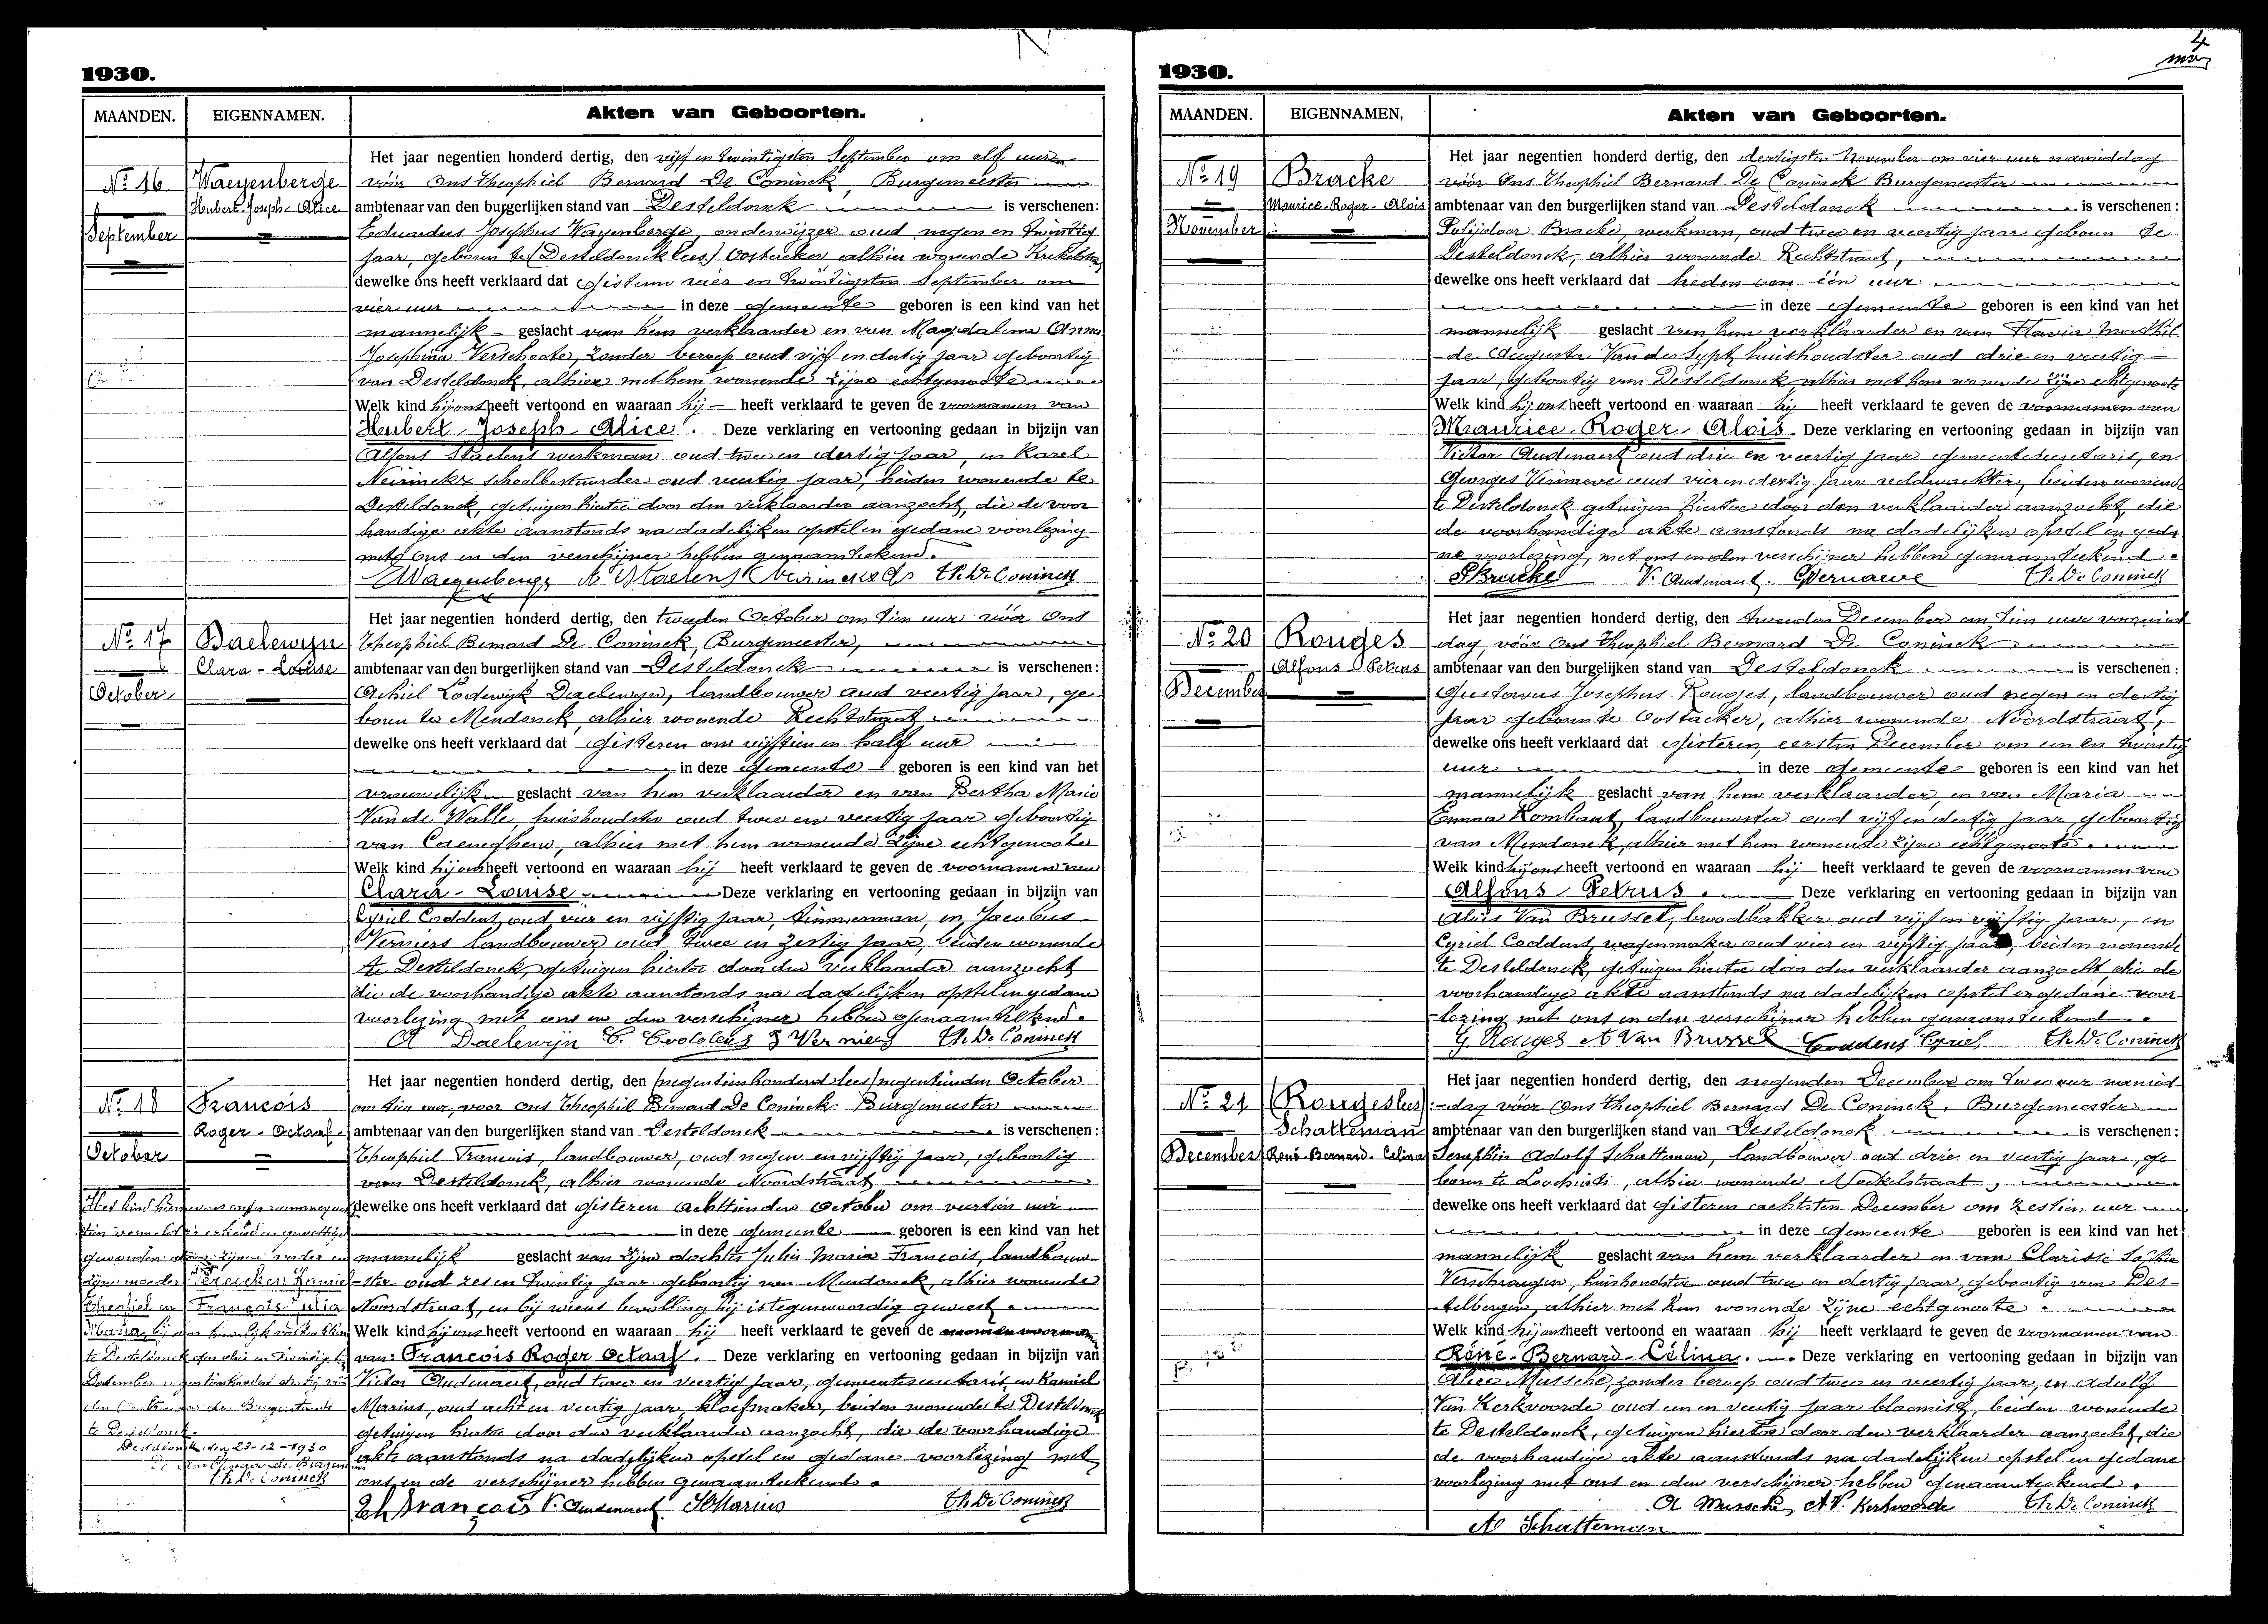 1930.
MAANDEN. EIGENNAMEN. Akten van Geboorten.
Nº 16
September
Waeyenberge
Hubert-Joseph-Alice
Het jaar negentien honderd dertig, den vijf en twintigsten September om elf uur
vóór Ons Theophiel Bernard De Coninck, Burgemeester
ambtenaar van den burgerlijken stand van Desteldonck is verschenen:
Eduardus Josephus Wayenberge, onderwijzer oud negen en twintig
jaar, geboren te (Desteldonck lees) Oostacker alhier wonende
dewelke ons heeft verklaard dat gisteren vier en twintigsten September om
vier uur in deze gemeente geboren is een kind van het
mannelijk geslacht van hem verklaarder en van Magdalena Anna
Josephina Verschoote, zonder beroep oud vijf en dertig jaar geboortig
van Desteldonck, alhier met hem wonende zijne echtgenoote
Welk kind hij ons heeft vertoond en waaraan hij heeft verklaard te geven de voornamen van
Hubert-Joseph-Alice. Deze verklaring en vertooning gedaan in bijzijn van
Alfons Staelens werkman oud twee en dertig jaar, en Karel
Neirinckx schoolbestuurder oud veertig jaar, beiden wonende te
Desteldonck, getuigen hiertoe door den verklaarder aanzocht, die de voor
handige akte aanstonds na dadelijken opstel en gedane voorlezing
met ons en den verschijner hebben genaamteekend.
Waeyenberge A Staelens Neirinckx Th. De Coninck
Nº 17
October
Daelewyn
Clara-Louise
Het jaar negentien honderd dertig, den tweeden October om tien uur vóór Ons
Theophiel Bernard De Coninck, Burgemeester,
ambtenaar van den burgerlijken stand van Desteldonck is verschenen:
Achiel Lodewijk Daelewyn, landbouwer oud veertig jaar, ge
boren te Mendonck, alhier wonende Rechtstraat
dewelke ons heeft verklaard dat gisteren om vijftien en half uur
in deze gemeente geboren is een kind van het
vrouwelijk geslacht van hem verklaarder en van Bertha Maria
Van de Walle, huishoudster oud twee en veertig jaar geboortig
van Caeneghem, alhier met hem wonende zijne echtgenoote
Welk kind hij ons heeft vertoond en waaraan hij heeft verklaard te geven de voornamen van
Clara-Louise Deze verklaring en vertooning gedaan in bijzijn van
Cyriel Coddens, oud vier en vijftig jaar, timmerman, en Jacobus
Verniers landbouwer oud twee en zestig jaar, beiden wonende
te Desteldonck, getuigen hiertoe door den verklaarder aanzocht
die de voorhandige akte aanstonds na dadelijken opstel en gedane
voorlezing met ons en den verschijner hebben genaamteekend.
A Daelewijn C. Coddens J Verniers Th. De Coninck
Nº 18
October
François
Roger-Octaaf.
Het jaar negentien honderd dertig, den (negentienhonderd lees) negentienden October
om tien uur, voor Ons Theophiel Bernard De Coninck Burgemeester
ambtenaar van den burgerlijken stand van Desteldonck is verschenen:
Theophiel Francois, landbouwer, oud negen en vijftig jaar, geboortig
van Desteldonck, alhier wonende Noordstraat
dewelke ons heeft verklaard dat gisteren achttienden October om veertien uur
in deze gemeente geboren is een kind van het
mannelijk geslacht van zijne dochter Julia Maria Francois, landbouw-
ster oud zes en twintig jaar geboortig van Mendonck, alhier wonende
Noordstraat, en bij wiens bevalling hij is tegenwoordig geweest.
Welk kind hij ons heeft vertoond en waaraan hij heeft verklaard te geven de
van: Francois Roger Octaaf. Deze verklaring en vertooning gedaan in bijzijn van
Victor Audenaert, oud twee en veertig jaar, gemeentesecretaris, en Kamiel
Marius, oud acht en veertig jaar, kloefmaker, beiden wonende te Desteldonck
getuigen hiertoe door den verklaarder aanzocht, die de voorhandige
akte aanstonds na dadelijken opstel en gedane voorlezing met
ons en de verschijner hebben genaamteekend.
Th François V. Audenaert Marius Th. De Coninck
geworden door zijnen vader en
zijne moeder Kamiel
Theofiel en François Julia
Maria, bij
te Desteldonck den vier en twintigsten
December negentienhonderd dertig vóór
te Desteldonck.
Desteldonck den 23-12-1930
Th. De Coninck
4
1930.
MAANDEN. EIGENNAMEN, Akten van Geboorten.
Nº 19
November
Bracke
Maurice-Roger-Alois
Het jaar negentien honderd dertig, den dertigsten November om vier uur namiddag
vóór Ons Theophiel Bernard De Coninck Burgemeester
ambtenaar van den burgerlijken stand van Desteldonck is verschenen:
Polijdoor Bracke, werkman, oud twee en veertig jaar geboren te
Desteldonck, alhier wonende Rechtstraat,
dewelke ons heeft verklaard dat heden om één uur
in deze gemeente geboren is een kind van het
mannelijk geslacht van hem verklaarder en van Flavia Mathil-
de Augusta Van der Sypt, huishoudster oud drie en veertig
jaar, geboortig van Desteldonck alhier met hem wonende zijne echtgenoote
Welk kind hij ons heeft vertoond en waaraan hij heeft verklaard te geven de voornamen van
Maurice-Roger-Alois. Deze verklaring en vertooning gedaan in bijzijn van
Victor Audenaert oud drie en veertig jaar gemeentesecretaris, en
Georges Vernaeve oud vier en dertig jaar veldwachter, beiden wonende
te Desteldonck getuigen hiertoe door den verklaarder aanzocht, die
de voorhandige akte aanstonds na dadelijken opstel en geda
ne voorlezing, met ons en den verschijner hebben genaamteekend.
P Bracke V. Audenaert. G Vernaeve Th. De Coninck
Nº 20
December
Rouges
Alfons-Petrus
Het jaar negentien honderd dertig, den tweeden December om tien uur voormid
dag, vóór Ons Theophiel Bernard De Coninck
ambtenaar van den burgerlijken stand van Desteldonck is verschenen:
Gustavus Josephus Rouges, landbouwer oud negen en dertig
jaar geboren te Oostacker, alhier wonende Noordstraat,
dewelke ons heeft verklaard dat gisteren, eersten December om een en twintig
uur in deze gemeente geboren is een kind van het
mannelijk geslacht van hem verklaarder, en van Maria
Emma Rombaut, landbouwster oud vijf en dertig jaar, geboortig
van Mendonck, alhier met hem wonende zijne echtgenoote.
Welk kind hij ons heeft vertoond en waaraan hij heeft verklaard te geven de voornamen van
Alfons-Petrus. Deze verklaring en vertooning gedaan in bijzijn van
Alois Van Brussel, broodbakker oud vijf en vijftig jaar, en
Cyriel Coddens, wagenmaker oud vier en vijftig jaar, beiden wonende
te Desteldonck, getuigen hiertoe door den verklaarder aanzocht, die de
voorhandige akte aanstonds na dadelijken opstel en gedane voor
lezing met ons en den verschijner hebben genaamteekend.
G. Rouges A Van Brussel Coddens Cyriel Th. De Coninck
Nº 21
December
(Rouges lees)
Schatteman
René-Bernard-Celina
Het jaar negentien honderd dertig, den negenden December om twee uur namid
-dag vóór Ons Theophiel Bernard De Coninck, Burgemeester
ambtenaar van den burgerlijken stand van Desteldonck is verschenen:
Seraphin Adolf Schatteman, landbouwer oud drie en veertig jaar, ge
boren te Loochristi, alhier wonende
dewelke ons heeft verklaard dat gisteren achtsten December om zestien uur
in deze gemeente geboren is een kind van het
mannelijk geslacht van hem verklaarder en van Clarisse Sophia
Verschraegen, huishoudster oud twee en dertig jaar, geboortig van Des-
telbergen, alhier met hem wonende zijne echtgenoote.
Welk kind hij ons heeft vertoond en waaraan hij heeft verklaard te geven de voornamen van
Réné-Bernard-Célina. Deze verklaring en vertooning gedaan in bijzijn van
Alice Mussche, zonder beroep oud twee en veertig jaar, en Adolf
Van Kerkvoorde oud een en veertig jaar bloemist, beiden wonende
te Desteldonck, getuigen hiertoe door den verklaarder aanzocht, die
de voorhandige akte aanstonds na dadelijken opstel en gedane
voorlezing met ons en den verschijner hebben genaamteekend.
A Mussche, A V. Kerkvoorde Th. De Coninck
A Schatteman